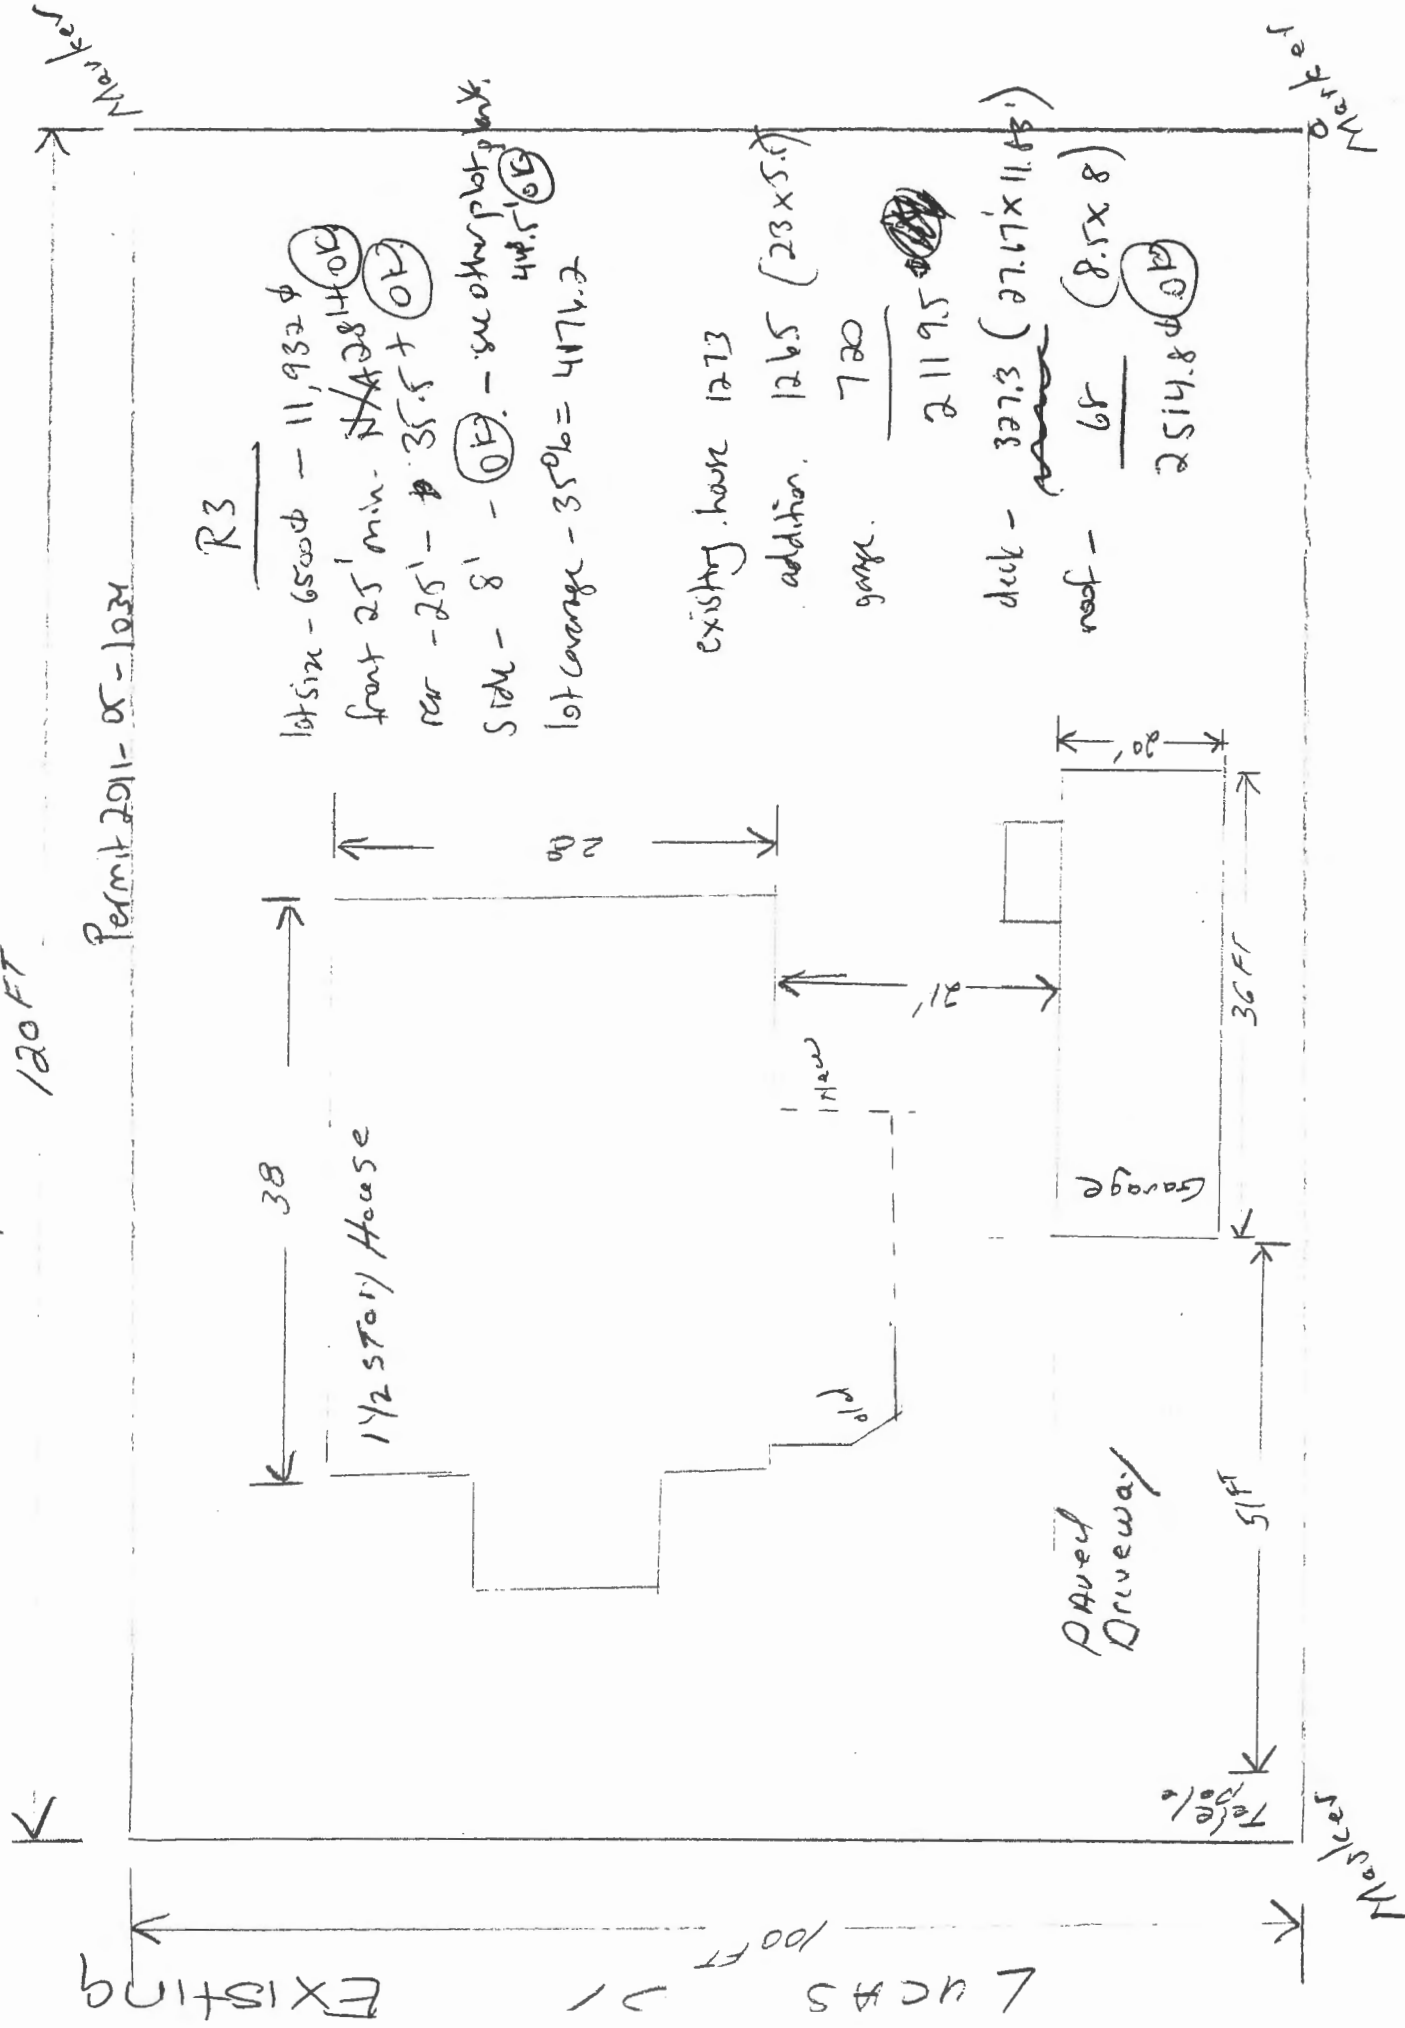 120 FT
Marker
Permit 2011-05-1034
R3
lot size - 6500 ф - 11,932 ф OK
front 25' min. N/A 28'+ OK
rear - 25' - 35.5 + OK
side - 8' - OK - see other plot plank.
44.5' OK
lot coverage - 35% = 4176.2
existing house 1273
addition. 126.5 (23 x 5.5)
garage. 720
2119.5
deck - 327.3 (27.67' x 11.83')
roof - 68 (8.5 x 8)
2514.8 ф OK
38
1 1/2 STory House
28
21'
New
old
20'
36 FT
Garage
Paved
Driveway
51 ft
Tele
pole
Marker
Marker
100 FT
LUCAS ST
EXISTING